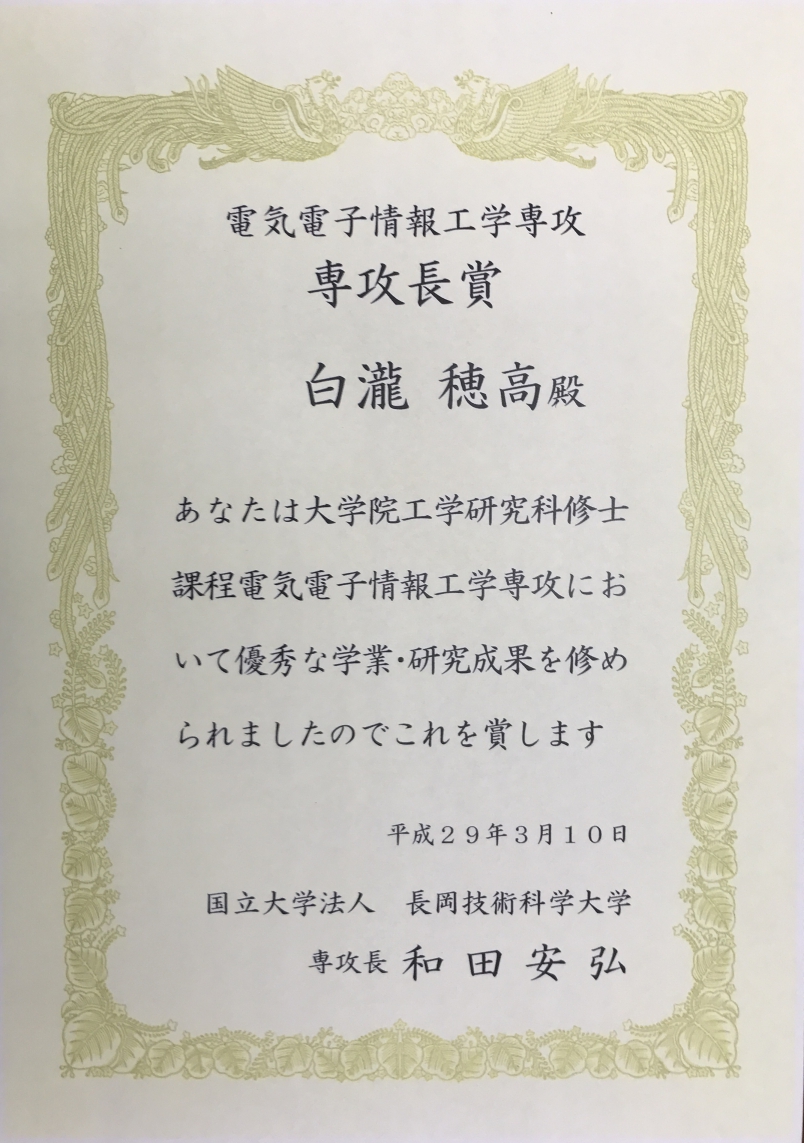 電気電子情報工学専攻
専攻長賞
白瀧 穂高殿
あなたは大学院工学研究科修士
課程電気電子情報工学専攻にお
いて優秀な学業・研究成果を修め
られましたのでこれを賞します
平成２９年３月１０日
国立大学法人　長岡技術科学大学
専攻長 和田安弘